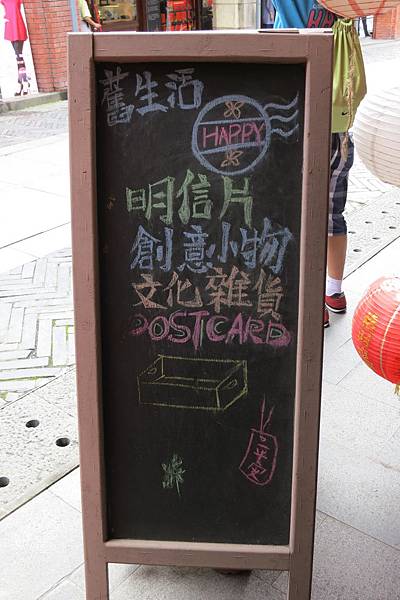 舊生活
HAPPY
明信片
創意小物
文化雜貨
POSTCARD
平安